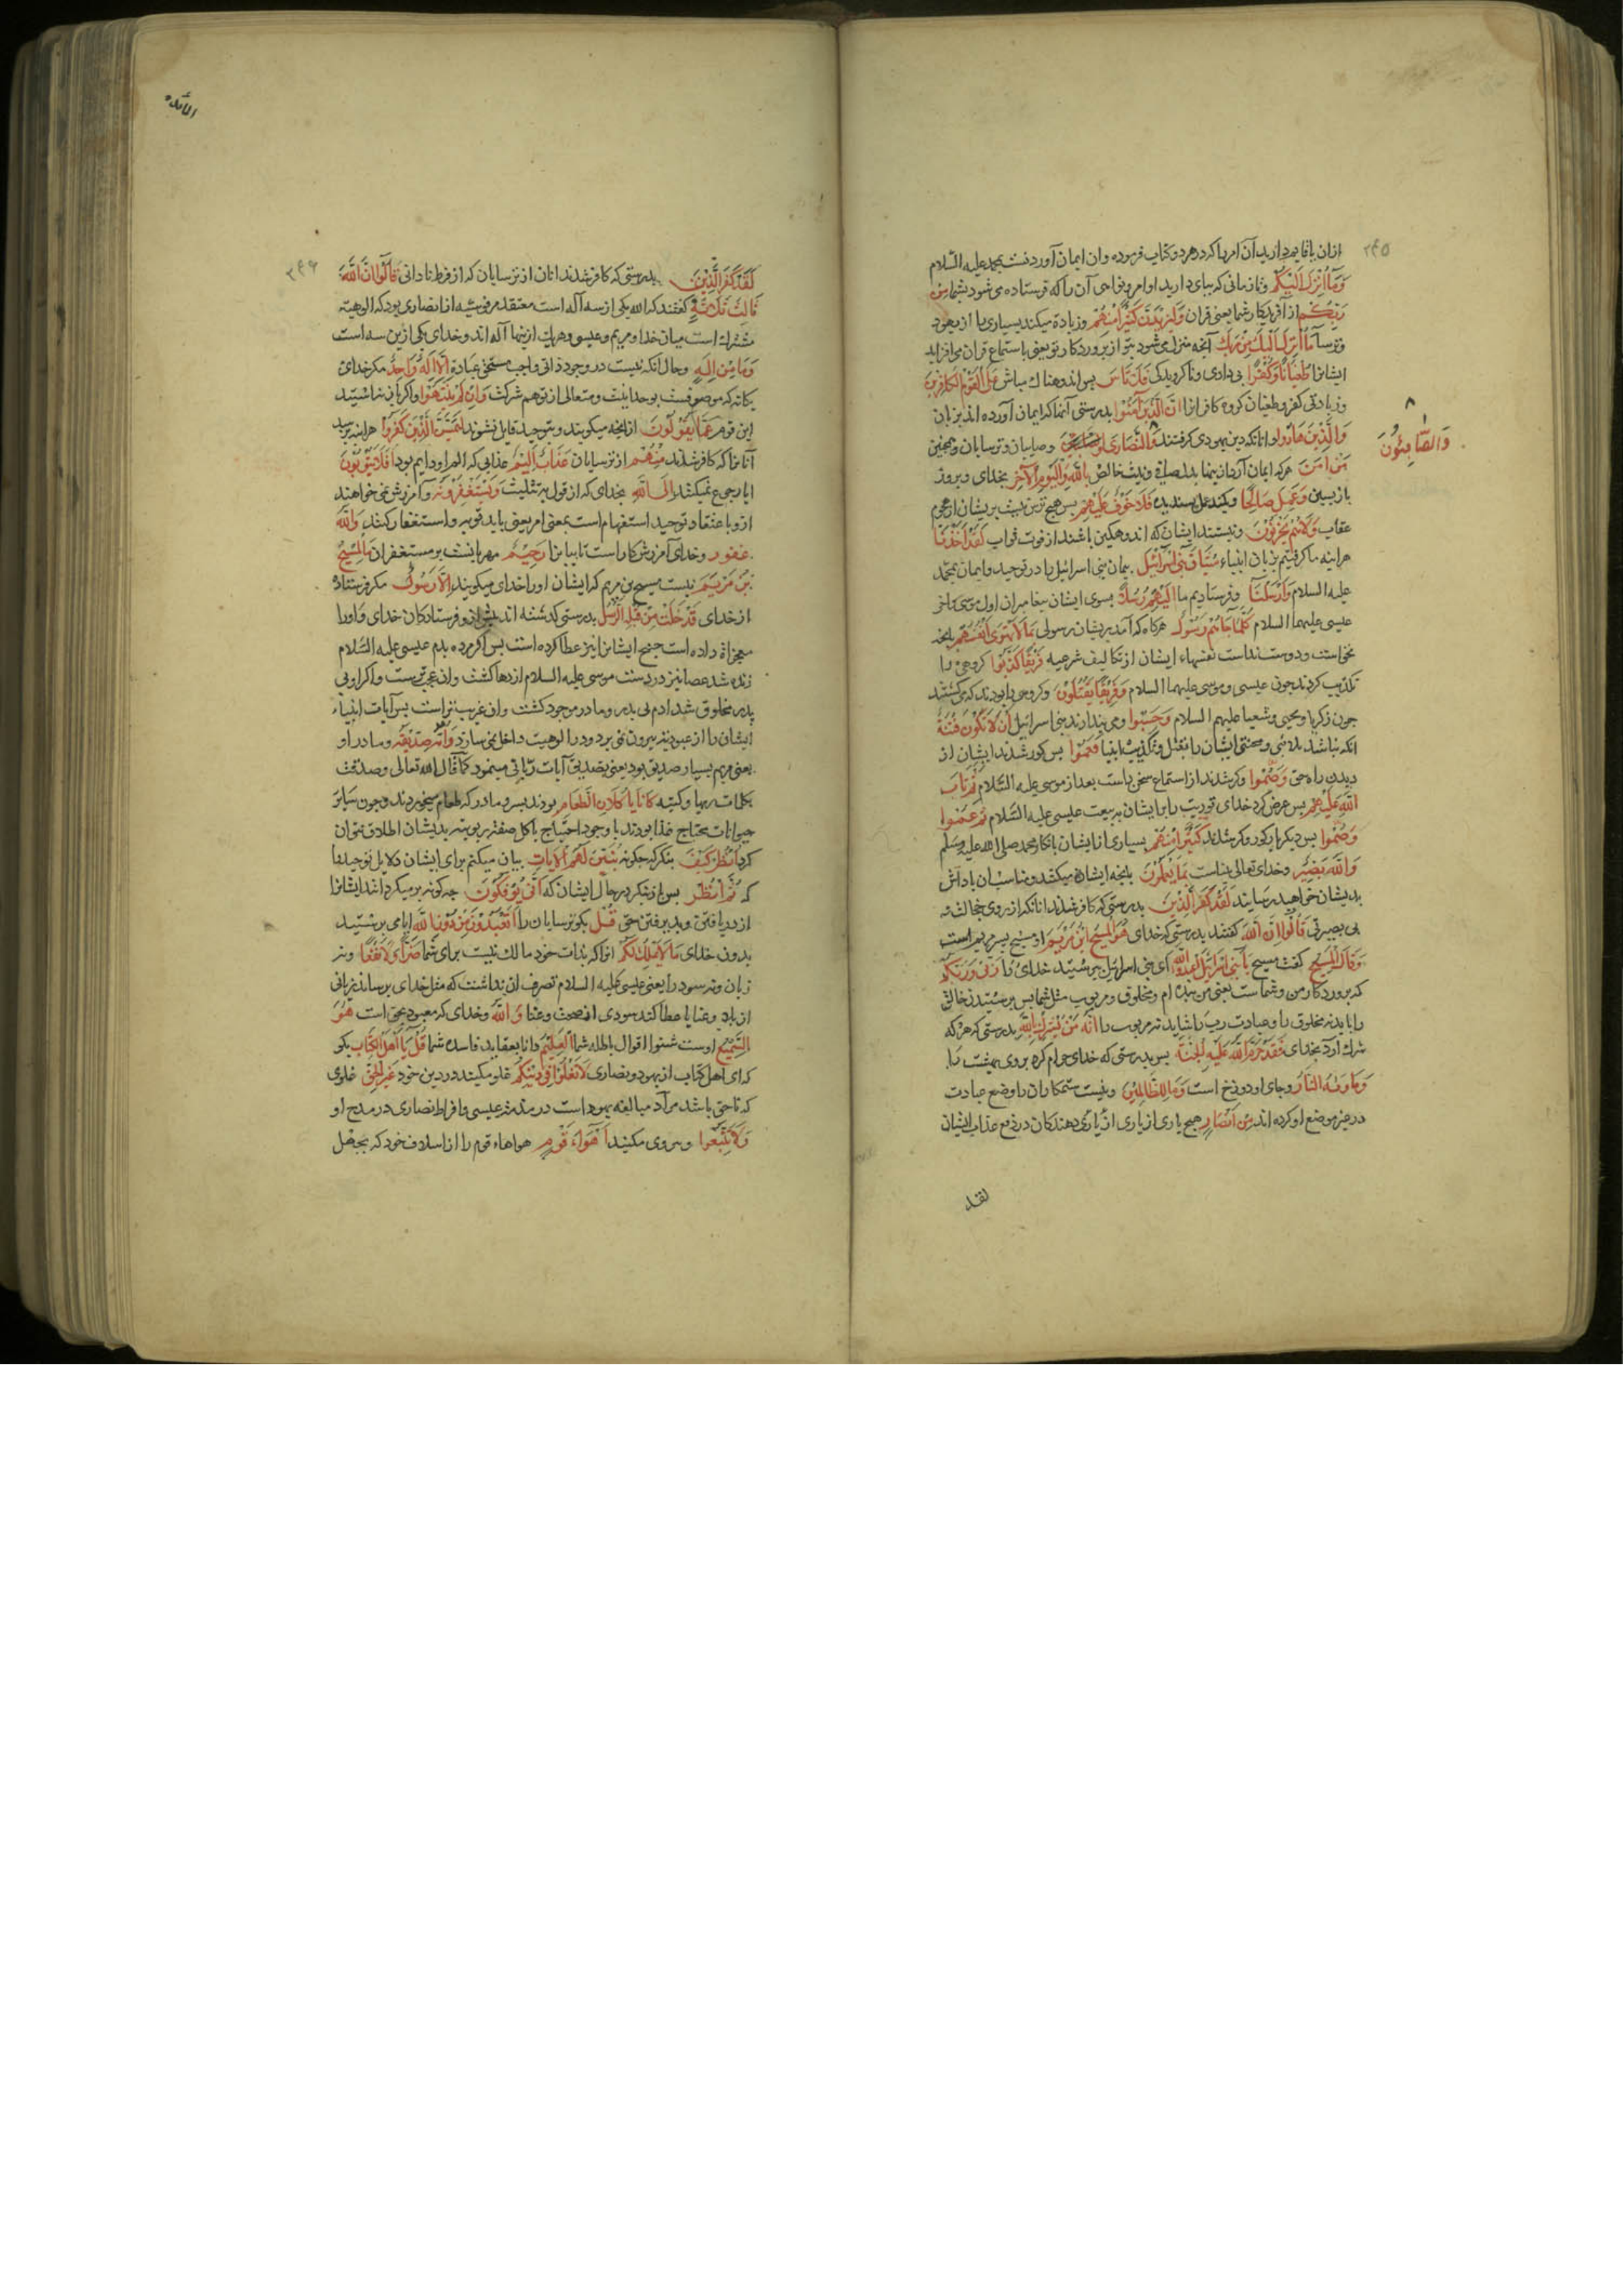 ۲۴۵
ازان باقامه دارید آن امرها که در هر دو کتاب فرموده و ان ایمان آوردنست بمحمد علیه السّلام
وَمَآ اُنْزِلَ اِلَیْکُمْ و تا زمانی که بپای دارید اوامر و نواهی آن را که فرستاده می شود بشما مِنْ
رَبِّکُمْ از آفریدکار شما یعنی قران وَلَیَزِیدَنَّ کَثِیرًا مِنْهُمْ و زیاده میکند بسیاری را از یهود
و ترسا مَآ اُنْزِلَ اِلَیْکَ مِنْ رَبِّکَ آنچه منزل می شود بتو از پروردکار تو یعنی باستماع قران می افزاید
ایشانرا طُغْیَانًا وَکُفْرًا بی دادی و ناکرویدکی فَلَا تَاْسَ پس اندوهناک مباش عَلَی الْقَوْمِ الْکَافِرِینَ
و زیادتی کفر و طغیان کروه کافرانرا اِنَّ الَّذِینَ آمَنُوا بدرستی آنها که ایمان آورده اند بزبان
وَالَّذِینَ هَادُوا و انانکه دین یهودی کرفتند وَالنَّصَارَی و صابیان و ترسایان و همچنین
وَالصَّابِئُونَ
مَنْ اٰمَنَ هر که ایمان آرد ازینها بدل صافی و نیت خالص بِاللّٰهِ وَالْیَوْمِ الْآخِرِ بخدای و بروز
بازپسین وَعَمِلَ صَالِحًا و کند عمل پسندیده فَلَا خَوْفٌ عَلَیْهِمْ پس هیچ ترس نیست بریشان از هجوم
عقاب وَلَاهُمْ یَحْزَنُونَ و نیستند ایشان که اندوهکین باشند از فوت ثواب لَقَدْ اَخَذْنَا
هراینه ما کرفتیم بزبان انبیاء مِیثَاقَ بَنِی اِسْرَائِیلَ پیمان بنی اسرائیل را در توحید و ایمان بمحمّد
علیه السلام وَاَرْسَلْنَا و فرستادیم ما اِلَیْهِمْ رُسُلًا بسوی ایشان پیغامبران اول موسی تا آخر
عیسی علیهما السلام کُلَّمَا جَائَهُمْ رَسُولٌ هرکاه که آمد بدیشان رسولی بِمَا لَا تَهْوَی اَنْفُسُهُمْ بانچه
نخواست و دوست نداشت نفسهاء ایشان از تکالیف شرعیه فَرِیقًا کَذَّبُوا کروهی را
تکذیب کردند چون عیسی و موسی علیهما السلام وَفَرِیقًا یَقْتُلُونَ و کروهی را بودند که می کشتند
چون زکریا و یحیی و شعیا علیهم السلام وَحَسِبُوا و می پندارند بنی اسرائیل اَنْ لَا تَکُونَ فِتْنَةٌ
انکه نباشد بلائی و محنتی ایشان را بقتل و تکذیب انبیا فَعَمُوا پس کور شدند ایشان از
دیدن راه حق وَصَمُّوا و کر شدند از استماع سخن راست بعد از موسی علیه السّلام ثُمَّ تَابَ
اللّٰهُ عَلَیْهِمْ پس عرض کرد خدای توبه را بر ایشان به بیعت عیسی علیه السّلام ثُمَّ عَمُوا
وَصَمُّوا پس دیکر بار کور و کر شدند کَثِیرٌ مِنْهُمْ بسیاری از ایشان بانکار محمد صلی الله علیه وسلم
وَاللّٰهُ بَصِیرٌ و خدای تعالی بیناست بِمَا یَعْمَلُونَ بانچه ایشان میکنند و مناسب آن پاداش
بدیشان خواهد رسانید لَقَدْ کَفَرَ الَّذِینَ بدرستی که کافر شدند انانکه از روی جهالت و
بی بصیرتی قَالُوا اِنَّ اللّٰهَ گفتند بدرستی که خدای هُوَ الْمَسِیحُ ابْنُ مَرْیَمَ او مسیح پسر مریم است
وَقَالَ الْمَسِیحُ کفت مسیح یَا بَنِی اِسْرَائِیلَ اعْبُدُوا اللّٰهَ ای بنی اسرائیل بپرستید خدای را رَبِّی وَرَبَّکُمْ
که پروردکار من و شماست یعنی من بنده ام و مخلوق و مربوب مثل شما پس پرستیدن خالق
را باید نه مخلوق را و عبادت رب را شاید نه مربوب را اِنَّهُ مَنْ یُشْرِکْ بِاللّٰهِ بدرستی که هرکه
شرک آرد بخدای فَقَدْ حَرَّمَ اللّٰهُ عَلَیْهِ الْجَنَّةَ پس بدرستی که خدای حرام کرد بر وی بهشت را
وَمَاْوٰیهُ النَّارُ و جای او دوزخ است وَمَا لِلظَّالِمِینَ و نیست ستمکاران را وضع عبادت
در غیر موضع او کرده اند مِنْ اَنْصَارٍ هیچ یاری از یاری دهندکان در دفع عذاب ایشان
لقد
المائده
۲۴۶
لَقَدْ کَفَرَ الَّذِینَ بدرستی که کافر شدند انان از ترسایان که از فرط نادانی قَالُوا اِنَّ اللّٰهَ
ثَالِثُ ثَلٰثَةٍ گفتند که الله یکی از سه آله است معتقد مرقوسیّه از نصاری بود که الوهیت
مشترک است میان خدا و مریم و عیسی و هر یک ازینها آله اند و خدای یکی ازین سه است
وَمَا مِنْ اِلٰهٍ و حال آنکه نیست در وجود ذاتی واجب مستحق عبادة اِلَّا اِلٰهٌ وَاحِدٌ مکر خدای
یکانه که موصوفست بوحدانیت و متعالی از توهم شرکت وَاِنْ لَمْ یَنْتَهُوا و اکر باز نه ایستند
این قوم عَمَّا یَقُولُونَ ازانچه میکویند و بتوحید قایل نشوند لَیَمَسَّنَّ الَّذِینَ کَفَرُوا هراینه برسد
آنانرا که کافر شدند مِنْهُمْ از ترسایان عَذَابٌ اَلِیمٌ عذابی که الم او دایم بود اَفَلَا یَتُوبُونَ
ایا رجوع نمیکنند اِلَی اللّٰهِ بخدای که از قول به تثلیث وَیَسْتَغْفِرُونَهُ و آمرزش نمی خواهند
ازو باعتقاد توحید استفهام است بمعنی امر یعنی باید توبه و استغفار کنند وَاللّٰهُ
غفور و خدای آمرزش کار است تایبانرا رَحِیمٌ مهربانست بر مستغفران مَا الْمَسِیحُ
بْنُ مَرْیَمَ نیست مسیح بن مریم که ایشان او را خدای میکویند اِلَّا رَسُولٌ مکر فرستاده
از خدای قَدْ خَلَتْ مِنْ قَبْلِهِ الرُّسُلُ بدرستی که کذشته اند پیش ازو فرستادکان خدای و او را
معجزاة داده است چنانچه ایشانرا نیز عطا کرده است پس اکر مرده بدم عیسی علیه السّلام
زنده شد عصا نیز در دست موسی علیه السلام اژدها کشت و ان عجب ترست و اکر او بی
پدر مخلوق شد ادم بی پدر و مادر موجود کشت و ان غریب تراست پس آیات انبیاء
ایشان را از عبودیت بیرون نمی برد و در الوهیت داخل نمی سازد وَاُمُّهُ صِدِّیقَةٌ و مادر او
یعنی مریم بسیار صدیق بود یعنی تصدیق آیات ربانی مینمود کما قال الله تعالی وصدقت
بکلمات ربها وکتبه کَانَا یَاْکُلَانِ الطَّعَامَ بودند پسر و مادر که طعام میخوردند و چون سایر
حیوانات محتاج غذا بودند با وجود احتیاج باکل صفت ربوبیت بدیشان اطلاق نتوان
کرد اُنْظُرْ کَیْفَ بنکر که چکونه نُبَیِّنُ لَهُمُ الْاٰیَاتِ بیان میکنم برای ایشان دلایل توحید را
که ثُمَّ انْظُرْ پس باز بنکر در حال ایشان که اَنّٰی یُؤْفَکُونَ چه کونه برمیکردانند ایشانرا
از دریافتن و پذیرفتن حق قُلْ بکو ترسایان را اَتَعْبُدُونَ مِنْ دُونِ اللّٰهِ ایا می پرستید
بدون خدای مَا لَا یَمْلِکُ لَکُمْ انرا که بذات خود مالک نیست برای شما ضَرًّا وَلَا نَفْعًا و نه
زیان و نه سود را یعنی عیسی علیه السلام تصرف ان نداشت که مثل خدای برساند زیانی
از بلا و عنا یا عطا کند سودی از صحت و غنا وَاللّٰهُ و خدای که معبود بحق است هُوَ
السَّمِیعُ اوست شنوا اقوال باطله شما الْعَلِیمُ دانا بعقاید فاسده شما قُلْ یَا اَهْلَ الْکِتَابِ بکو
که ای اهل کتاب از یهود و نصاری لَا تَغْلُوا فِی دِینِکُمْ غلو مکنید در دین خود غَیْرَ الْحَقِّ غلوی
که ناحق باشد مراد مبالغه یهود است در مذمت عیسی و افراط نصاری در مدح او
وَلَا تَتَّبِعُوا و پیروی مکنید اَهْوَاءَ قَوْمٍ هواهاء قوم را از اسلاف خود که بجهل